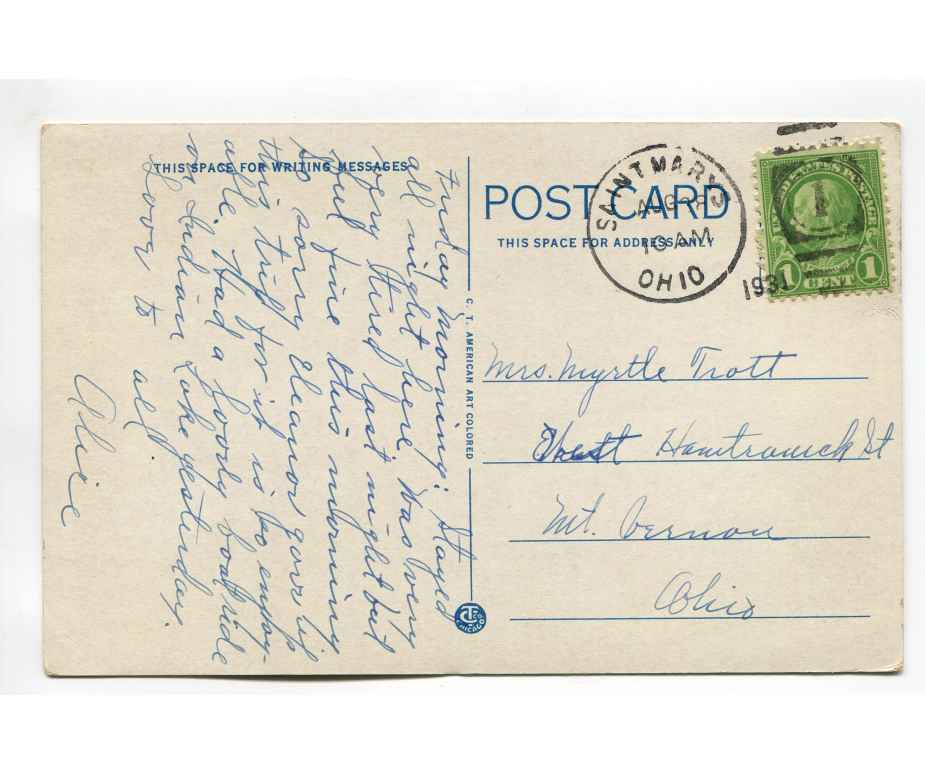 THIS SPACE FOR WRITING MESSAGES
Friday Morning: Stayed
all night here. Was very
very tired last night but
feel fine this morning
So sorry Eleanor gave up
this trip for it is so enjoy-
able. Had a lovely boat ride
on Indian Lake yesterday.
Love to all
Alice
C. T. AMERICAN ART COLORED
CHICAGO
POST CARD
THIS SPACE FOR ADDRESS ONLY
SAINT MARYS
AUG 28
10 AM
OHIO
1931
UNITED STATES POSTAGE
1
1 CENT 1
Mrs. Myrtle Trott
West Hamtramck St
Mt. Vernon
Ohio